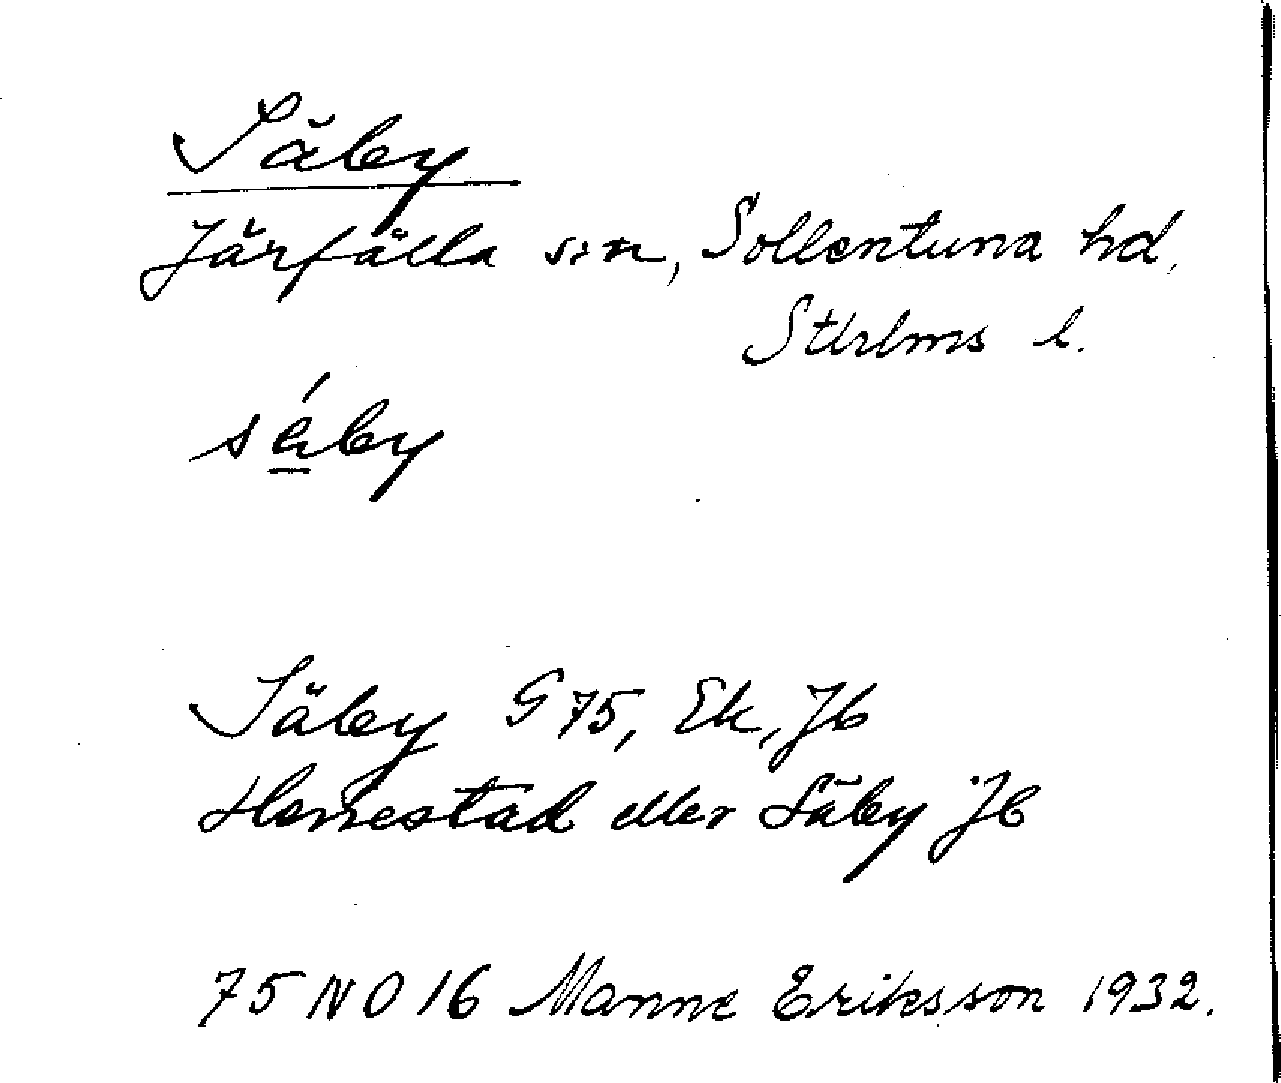 Säby
Järfälla sn, Sollentuna hd,
Sthlms l.
säby
Säby G 75, Ek, Jb
Henestad eller Säby Jb
75 NO 16 Manne Eriksson 1932.